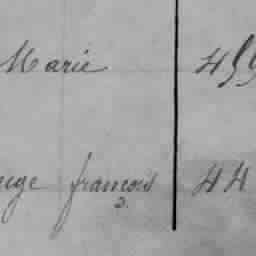 Marie 455
françois 44
2.